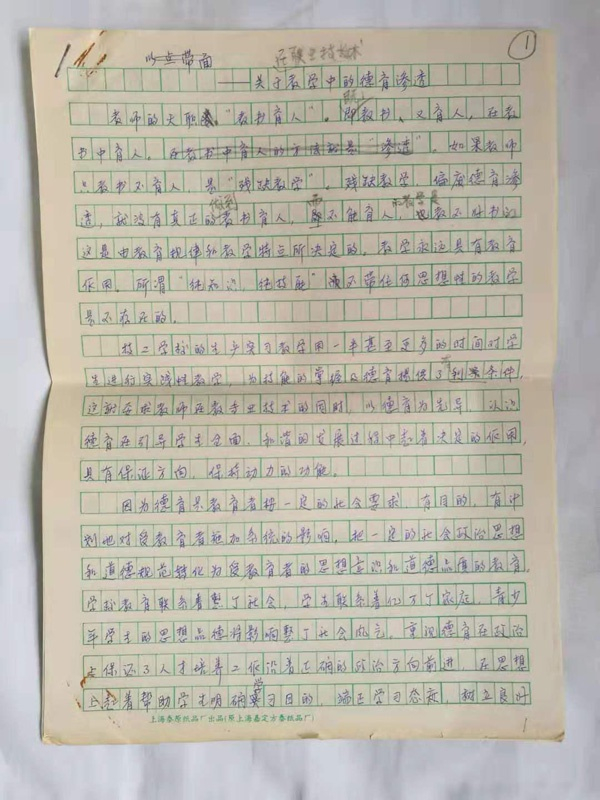 ①
以点带面
——关于教学中的德育渗透
教师的天职是"教书育人"。即教书、又育人，在教
书中育人，在教书中育人的方法就是"渗透"。如果教师
只教书不育人，是"残缺教学"。残缺教学，偏废德育渗
透，就没有真正的教书育人，不能育人，也教不好书的
这是由教育规律和教学特点所决定的。教学永远具有教育
作用。所谓"纯知识、纯技能"不带任何思想性的教学
是不存在的。
技工学校的生产实习教学用一半甚至更多的时间对学
生进行实践性教学，为技能的掌握及德育提供了有利条件，
这就要求教师在教专业技术的同时，以德育为先导，认识
德育在引导学生全面、和谐的发展过程中起着决定的作用，
具有保证方向，保持动力的功能。
因为德育是教育者按一定的社会要求，有目的、有计
划地对受教育者施加系统的影响，把一定的社会政治思想
和道德规范转化为受教育者的思想意识和道德品质的教育。
学校教育联系着整个社会，学生联系着亿万个家庭，青少
年学生的思想品德将影响整个社会风气，重视德育在政治
上保证了人才培养工作沿着正确的政治方向前进，在思想
上起着帮助学生明确学习目的，端正学习态度，树立良好
上海泰厚纸品厂出品(原上海嘉定方泰纸品厂)
1